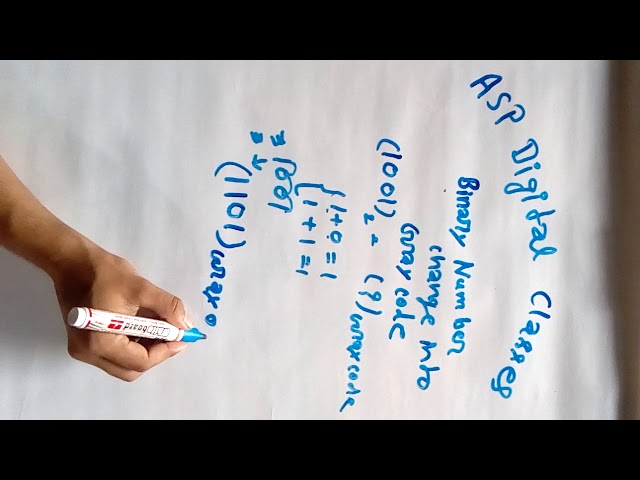 ASP Digital Classes
Binary Number
change into
Gray code
(1001)₂ = (?) Gray code
1+0=1
1+1=1
1001
(1101) Gray